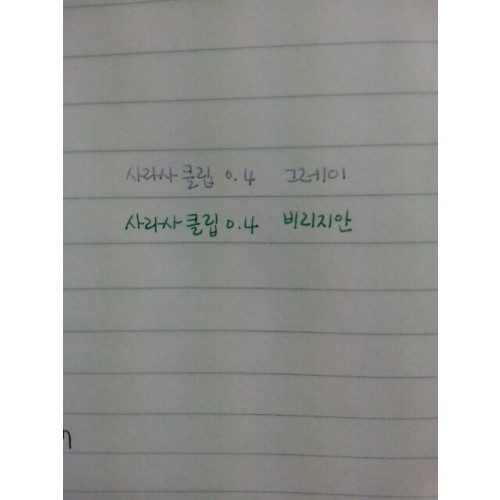 사라사클립 0.4 그레이
사라사클립 0.4 비리지안